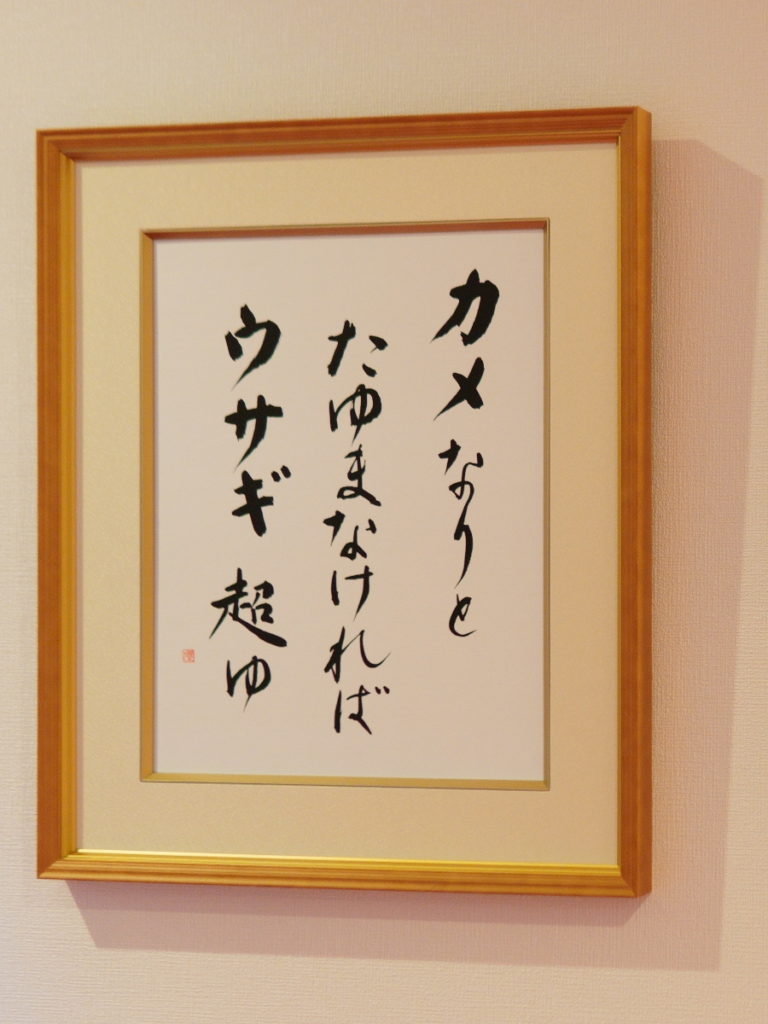 カメなりと
たゆまなければ
ウサギ超ゆ